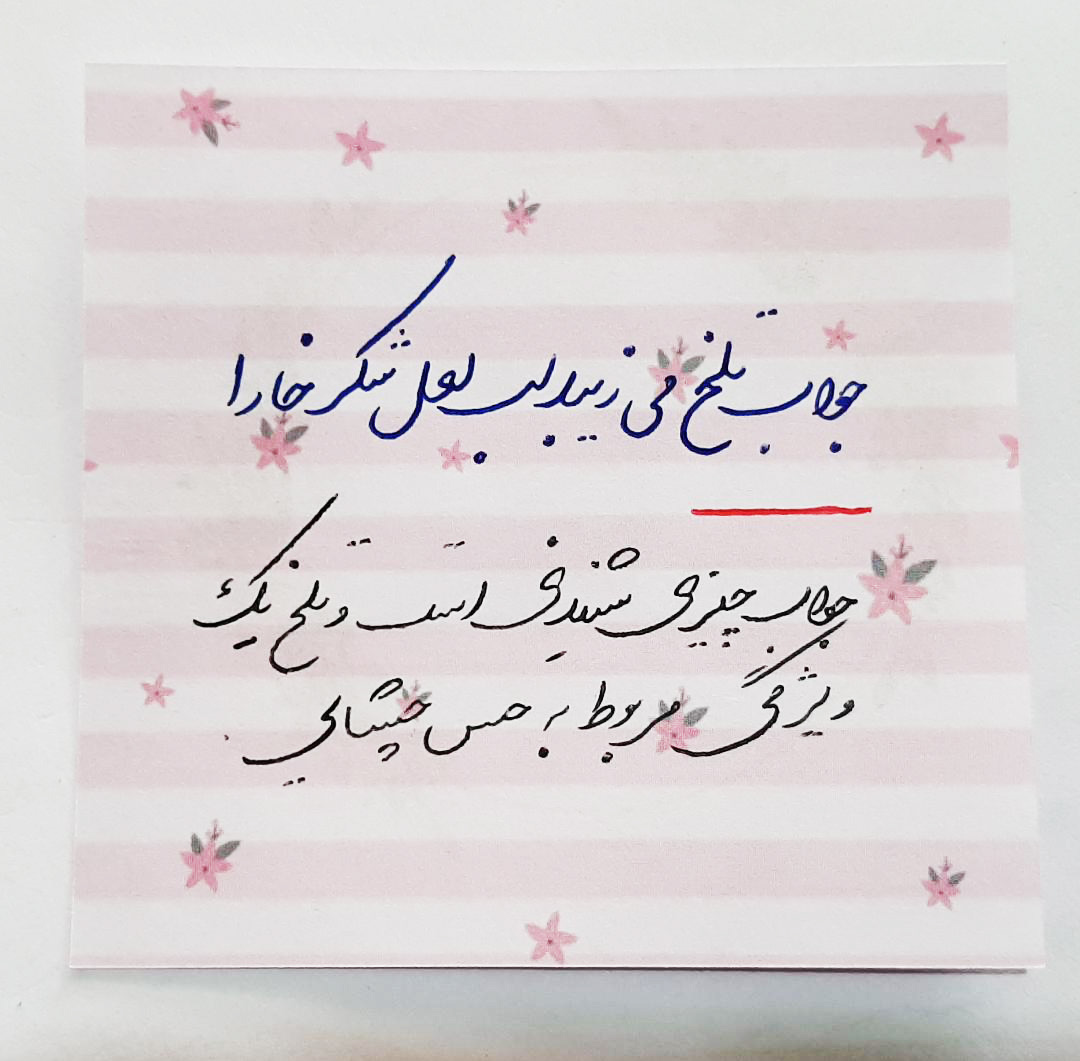 جواب تلخ می زیبد لب لعل شکر خارا
جواب چیزی شنیدنی است و تلخ یک
ویژگی مربوط به حس چشتایی